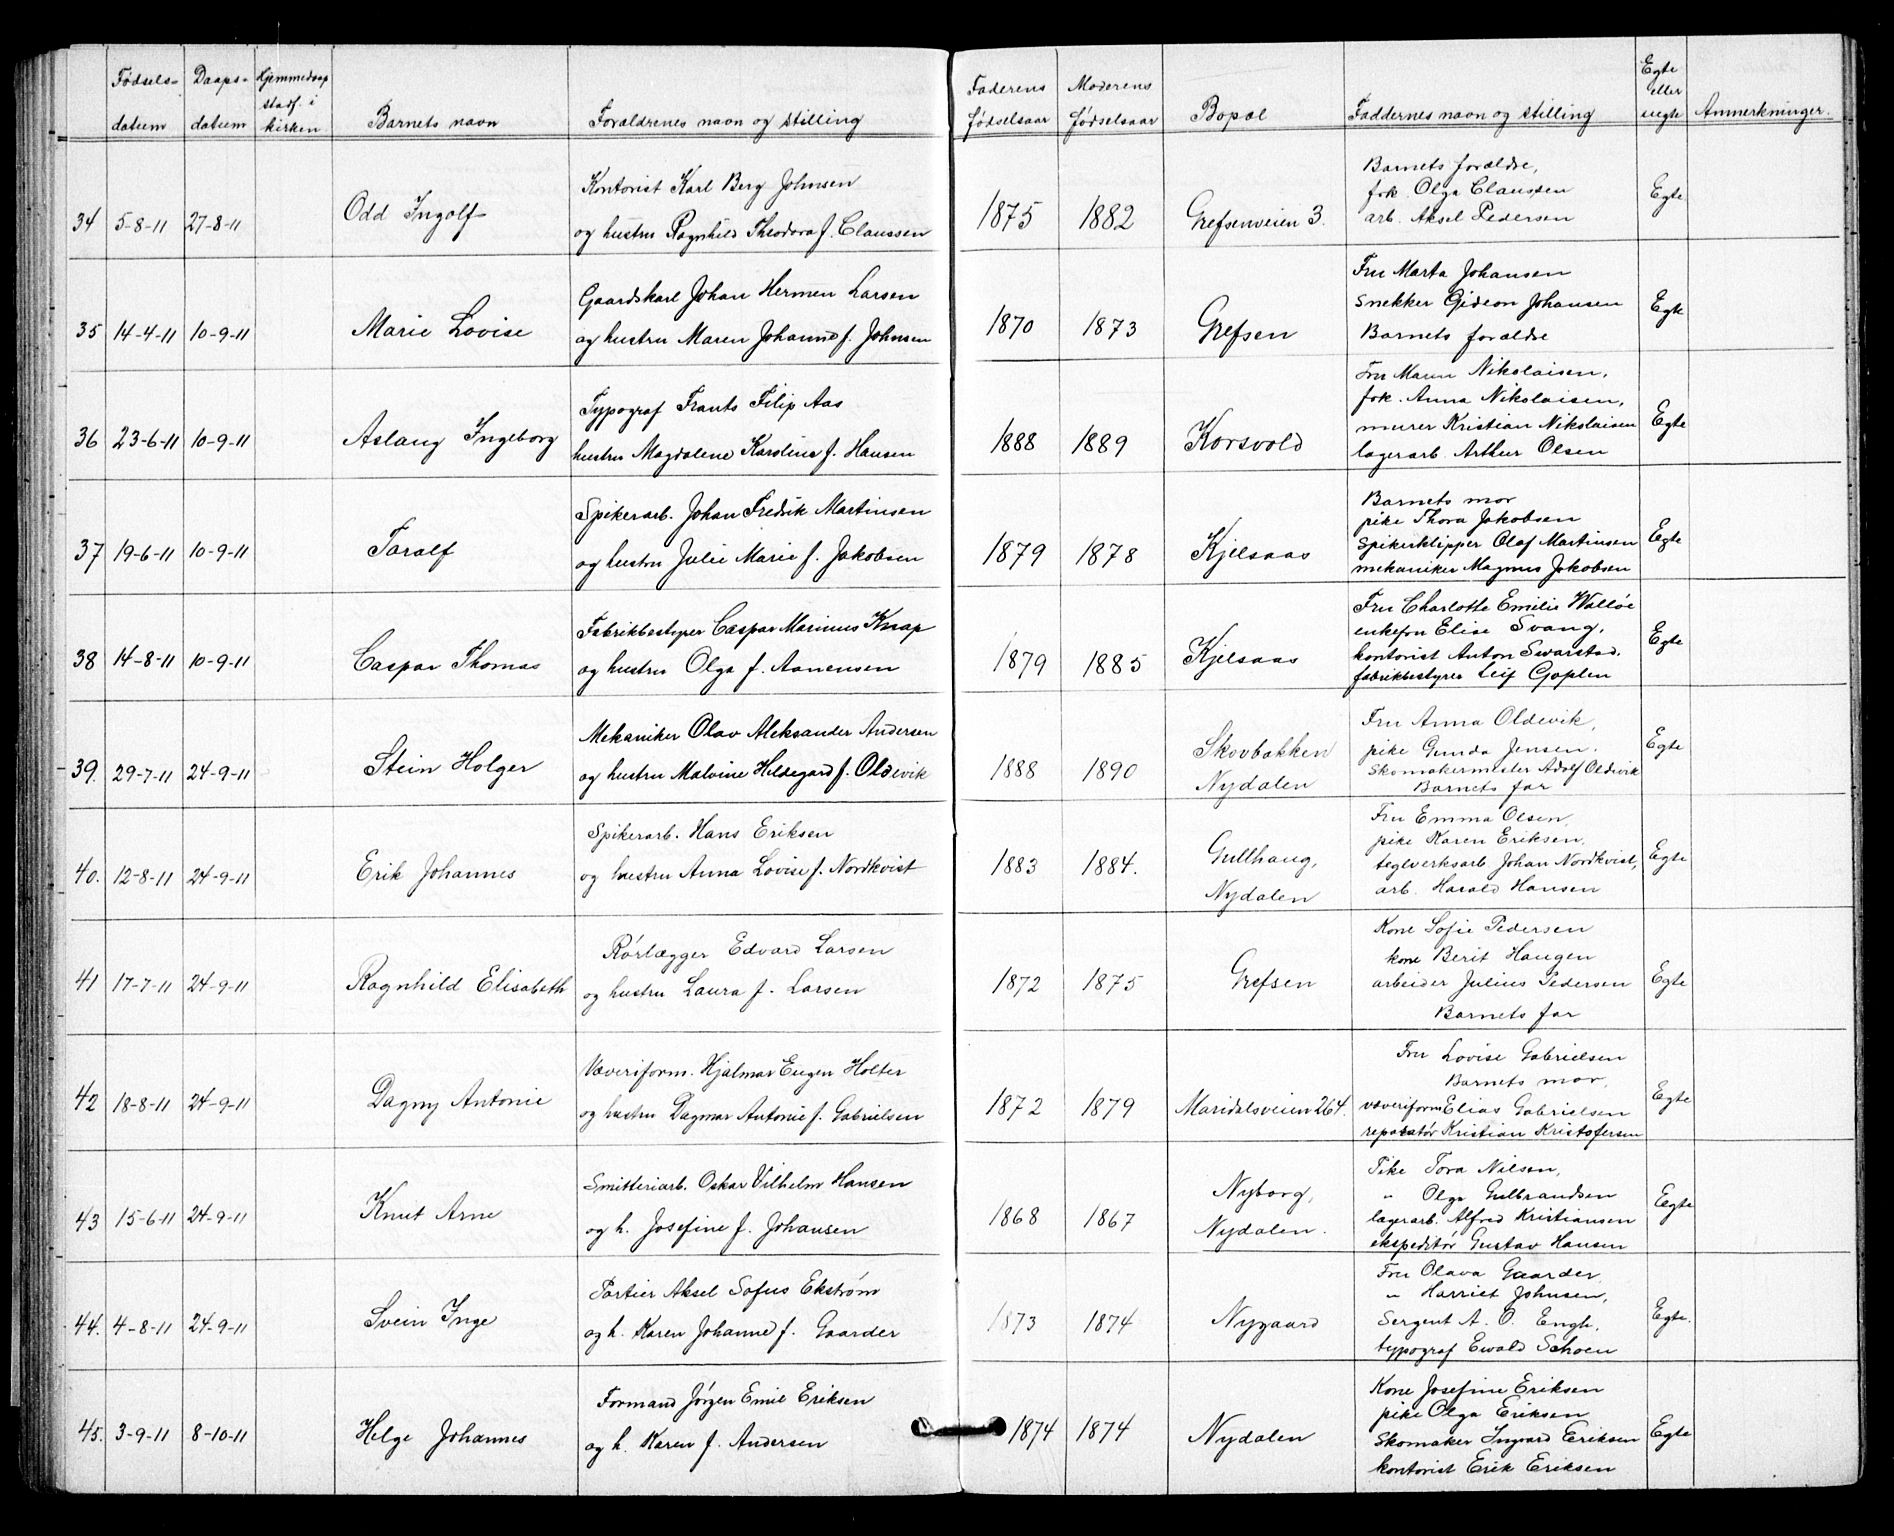 Fødsels-
datum
Daaps-
datum
Hjemmedaap
stadf. i
kirken
Barnets navn
Forældrenes navn og stilling
Faderens
fødselsaar
Moderens
fødselsaar
Bopæl
Faddernes navn og stilling
Egte
eller
uegte
Anmerkninger.
34 5-8-11 27-8-11
Odd Ingolf
Kontorist Karl Berg Johnsen
og hustru Ragnhild Theodora f. Claussen
1875 1882 Grefsenveien 3.
Barnets forældre,
frk. Olga Claussen
arb. Aksel Pedersen
Egte
35 14-4-11 10-9-11
Marie Lovise
Gaardskarl Johan Hermen Larsen
og hustru Maren Johanne f. Johnsen
1870 1873 Grefsen
Fru Marta Johansen
Snekker Gideon Johansen
Barnets forældre
Egte
36 23-6-11 10-9-11
Aslaug Ingeborg
Typograf Frants Filip Aas
hustru Magdalene Karoline f. Hansen
1888 1889 Korsvold
Fru Maren Nikolaisen,
frk. Anna Nikolaisen,
murer Kristian Nikolaisen
lagerarb. Arthur Olsen
Egte
37 19-6-11 10-9-11
Taralf
Spikerarb. Johan Fredrik Martinsen
og hustru Julie Marie f. Jakobsen
1879 1878 Kjelsaas
Barnets mor
pike Thora Jakobsen
Spikerklipper Olaf Martinsen
mekaniker Magnus Jakobsen
Egte
38 14-8-11 10-9-11
Caspar Thomas
Fabrikbestyrer Caspar Marinus Knap
og hustru Olga f. Aanensen
1879 1885 Kjelsaas
Fru Charlotte Emilie Walløe
enkefru Elise Svang,
kontorist Anton Svarstad.
fabrikbestyrer Leif Goplen
Egte
39. 29-7-11 24-9-11
Stein Holger
Mekaniker Olav Aleksander Andersen
og hustru Malvine Hildegard f. Oldevik
1888 1890
Skovbakken
Nydalen
Fru Anna Oldevik,
pike Gunda Jensen.
Skomakermester Adolf Oldevik
Barnets far
Egte
40. 12-8-11 24-9-11
Erik Johannes
Spikerarb. Hans Eriksen
og hustru Anna Lovise f. Nordkvist
1883 1884.
Gullhaug,
Nydalen
Fru Emma Olsen,
pike Karen Eriksen,
teglverksarb Johan Nordkvist,
arb. Harald Hansen
Egte
41 17-7-11 24-9-11
Ragnhild Elisabeth
Rørlægger Edvard Larsen
og hustru Laura f. Larsen
1872 1875 Grefsen
Kone Sofie Pedersen
kone Berit Haugen
arbeider Julius Pedersen
Barnets far
Egte
42 18-8-11 24-9-11
Dagny Antonie
Væveriform. Hjalmar Eugen Holter
og hustru Dagmar Antonie f. Gabrielsen
1872 1879 Maridalsveien 264.
Fru Lovise Gabrielsen
Barnets mor,
væveriform Elias Gabrielsen
reparatør Kristian Kristofersen
Egte
43 15-6-11 24-9-11
Knut Arne
Smitteriarb. Oskar Vilhelm Hansen
og h. Josefine f. Johansen
1868 1867
Nyborg,
Nydalen.
Pike Tora Nilsen,
" Olga Gulbrandsen
lagerarb. Alfred Kristiansen
ekspeditør Gustav Hansen
Eegte
44. 4-8-11 24-9-11
Svein Inge
Portier Aksel Sofus Ekstrøm
og h. Karen Johanne f. Gaarder
1873 1874 Nygaard
Fru Olava Gaarder,
" Harriet Johnsen,
Sergent A. O. Engh.
typograf Ewald Schoen
Egte.
45. 3-9-11 8-10-11
Helge Johannes
Formand Jørgen Emil Eriksen
og h. Karen f. Andersen
1874 1874 Nydalen
Kone Josefine Eriksen
pike Olga Eriksen
Skomaker Ingvard Eriksen
kontorist Erik Eriksen
Egte